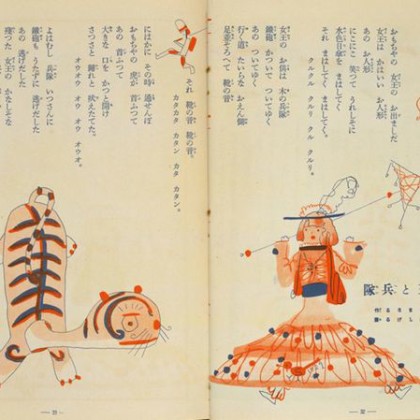 と兵隊
おもちやの 女王の お出ましだ
女王は かはいい お人形
あの お人形
にこにこと 笑つて うれしさに
日傘を まはしてく
それ まはしてく まはしてく。
クルクル クルリ クル クルリ。
女王の お供は 木の兵隊
鐵砲 かついで ついてゆく
あの ついてゆく
行く道 たいらな おえん側
足並そろへて 靴の音
それ 靴の音 靴の音。
カタカタ カタン カタ カタン。
にはかに その時 通せんぼ
おもちやの 虎が 首ふつて
あの 首ふつて
大きな 口を かつと開け
さつさと 歸れと 吠えたてた。
オウオウ オウ オウ オウオ。
よはむし 兵隊 いつさんに
鐵砲も うたずに 逃げだした
あの 逃げだした
殘つた 女王の かなしさな